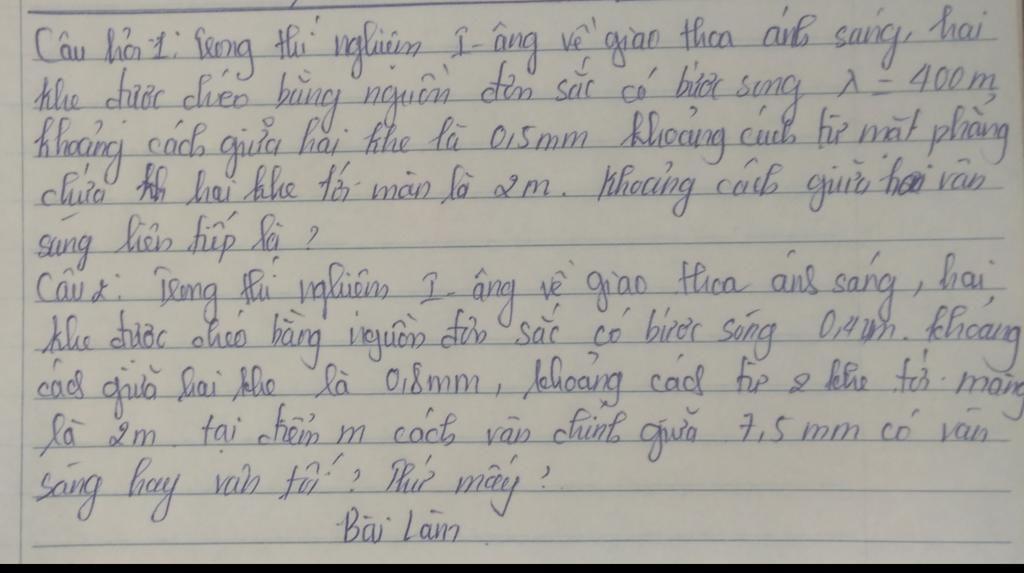 Câu hỏi 1: Trong thí nghiệm I-âng về giao thoa ánh sáng, hai
khe được chiếu bằng nguồn đơn sắc có bước sóng λ = 400 m
khoảng cách giữa hai khe là 0,5mm khoảng cách từ mặt phẳng
chứa hai khe tới màn là 2m. Khoảng cách giữa hai vân
sáng liên tiếp là ?
Câu 2: Trong thí nghiệm I-âng về giao thoa ánh sáng, hai
khe được chiếu bằng nguồn đơn sắc có bước sóng 0,4μm. khoảng
cách giữa hai khe là 0,8mm, khoảng cách từ 2 khe tới màng
là 2m tại điểm m cách vân chính giữa 7,5 mm có vân
sáng hay vân tối? Thứ mấy?
Bài làm